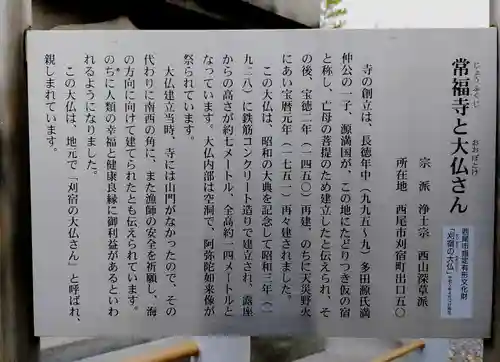 じょうふくじ おおぼとけ
常福寺と大仏さん
宗　派　浄土宗　西山深草派
所在地　西尾市刈宿町出口五〇
西尾市指定有形文化財
「刈宿の大仏」
寺の創立は、長徳年中（九九五〜九）多田源氏満
仲公の二子、源満国が、この地にたどりつき仮の宿
と称し、亡母の菩提のため建立したと伝えられ、そ
の後、宝徳二年（一四五〇）再建、のちに天災野火
にあい宝暦元年（一七五一）再々建されました。
この大仏は、昭和の大典を記念して昭和三年（一
九二八）に鉄筋コンクリート造りで建立され、露座
からの高さが約七メートル、全高約一四メートルと
なっています。大仏内部は空洞で、阿弥陀如来像が
祭られています。
大仏建立当時、寺には山門がなかったので、その
代わりに南西の角に、また漁師の安全を祈願し、海
の方向に向けて建てられたとも伝えられています。
のちに人類の幸福と健康良縁に御利益があるといわ
れるようになりました。
この大仏は、地元で「刈宿の大仏さん」と呼ばれ、
親しまれています。